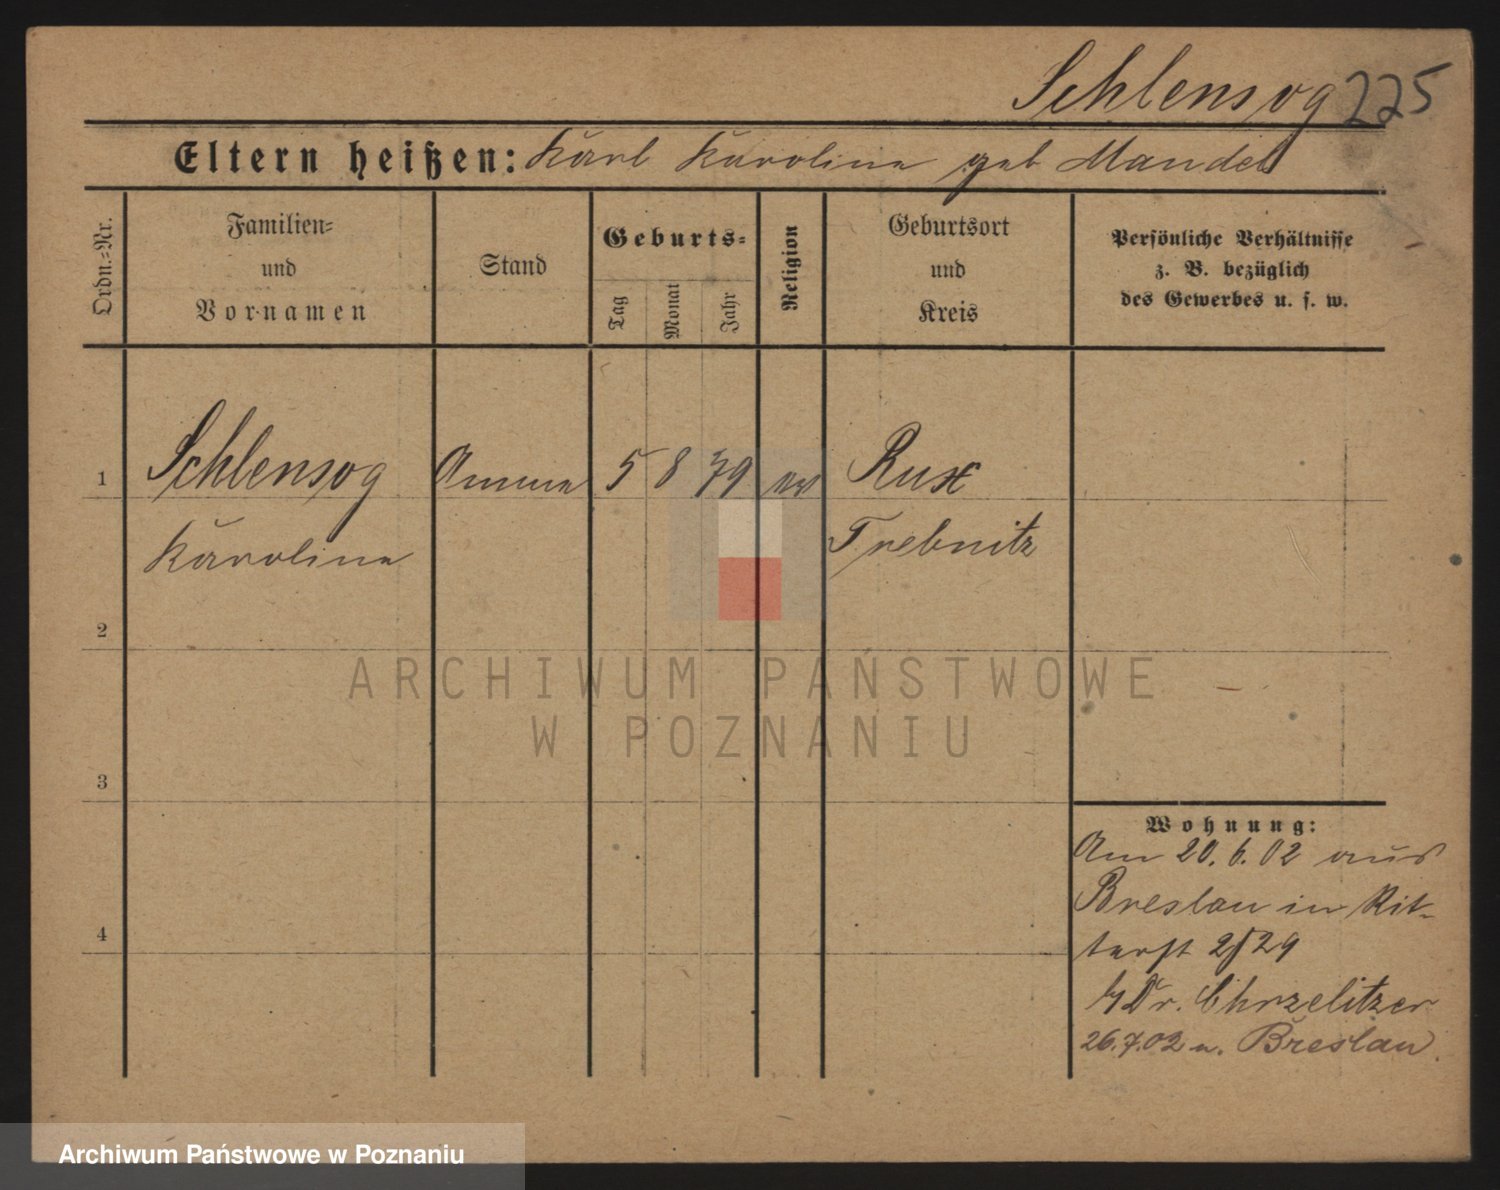 Schlensog 225
Eltern heißen: Karl Karoline geb Mandel
Ordn.-Nr.
Familien-
und
Vornamen
Stand
Geburts-
Tag
Monat
Jahr
Religion
Geburtsort
und
Kreis
Persönliche Verhältnisse
z. B. bezüglich
des Gewerbes u. s. w.
1 Schlensog Amme 5 8 79 ev Rux
Karoline Trebnitz
2
3
4
ARCHIWUM PAŃSTWOWE
W POZNANIU
Wohnung:
Am 20.6.02 aus
Breslau in Rit-
terst 2/29
b/ Dr. Chrzelitzer
26.7.02 n. Breslau.
Archiwum Państwowe w Poznaniu